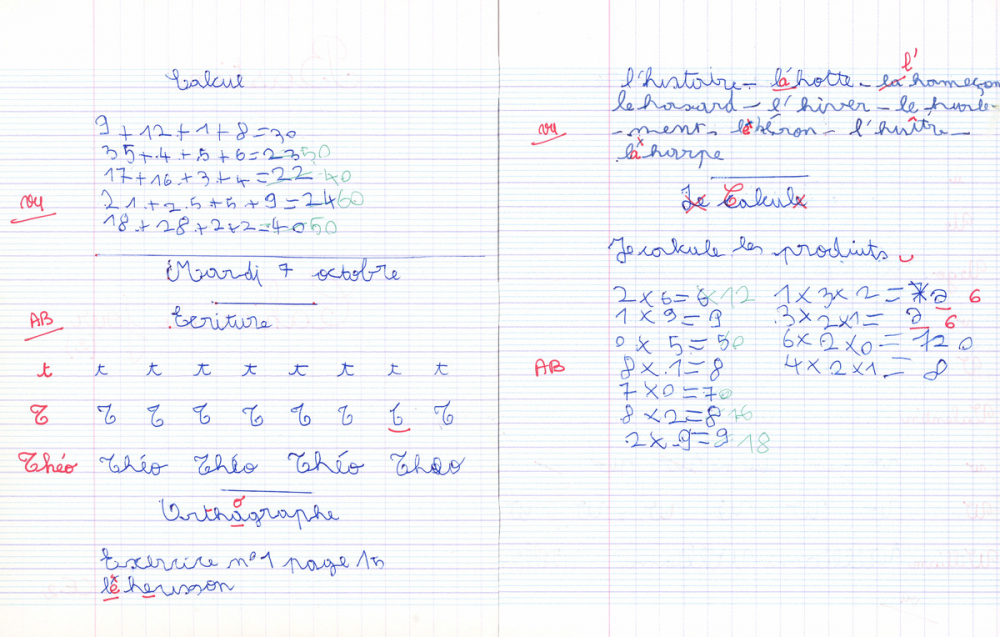 Calcul
9 + 12 + 1 + 8 = 30
35 + 4 + 5 + 6 = 23 50
17 + 16 + 3 + 4 = 22 40
vu
21 + 25 + 5 + 9 = 24 60
18 + 28 + 2 + 2 = 40 50
Mardi 7 octobre
AB
Ecriture
t t t t t t t t t
T T T T T T T T T
Théo Théo Théo Théo Théo
Orthagraphe
o
Exercice n°1 page 15
lé herisson
l'
l'histoire - la hotte - la hameçon
le hasard - l'hiver - le hurle-
vu
- ment - le héron - l'huître -
la harpe
Je Calcule
Je calcule les produits
2 x 6 = 6 12 1 x 3 x 2 = 6
1 x 9 = 9 3 x 2 x 1 = 6
0 x 5 = 5 0 6 x 2 x 0 = 12 0
AB
8 x 1 = 8 4 x 2 x 1 = 8
7 x 0 = 7 0
8 x 2 = 8 16
2 x 9 = 9 18